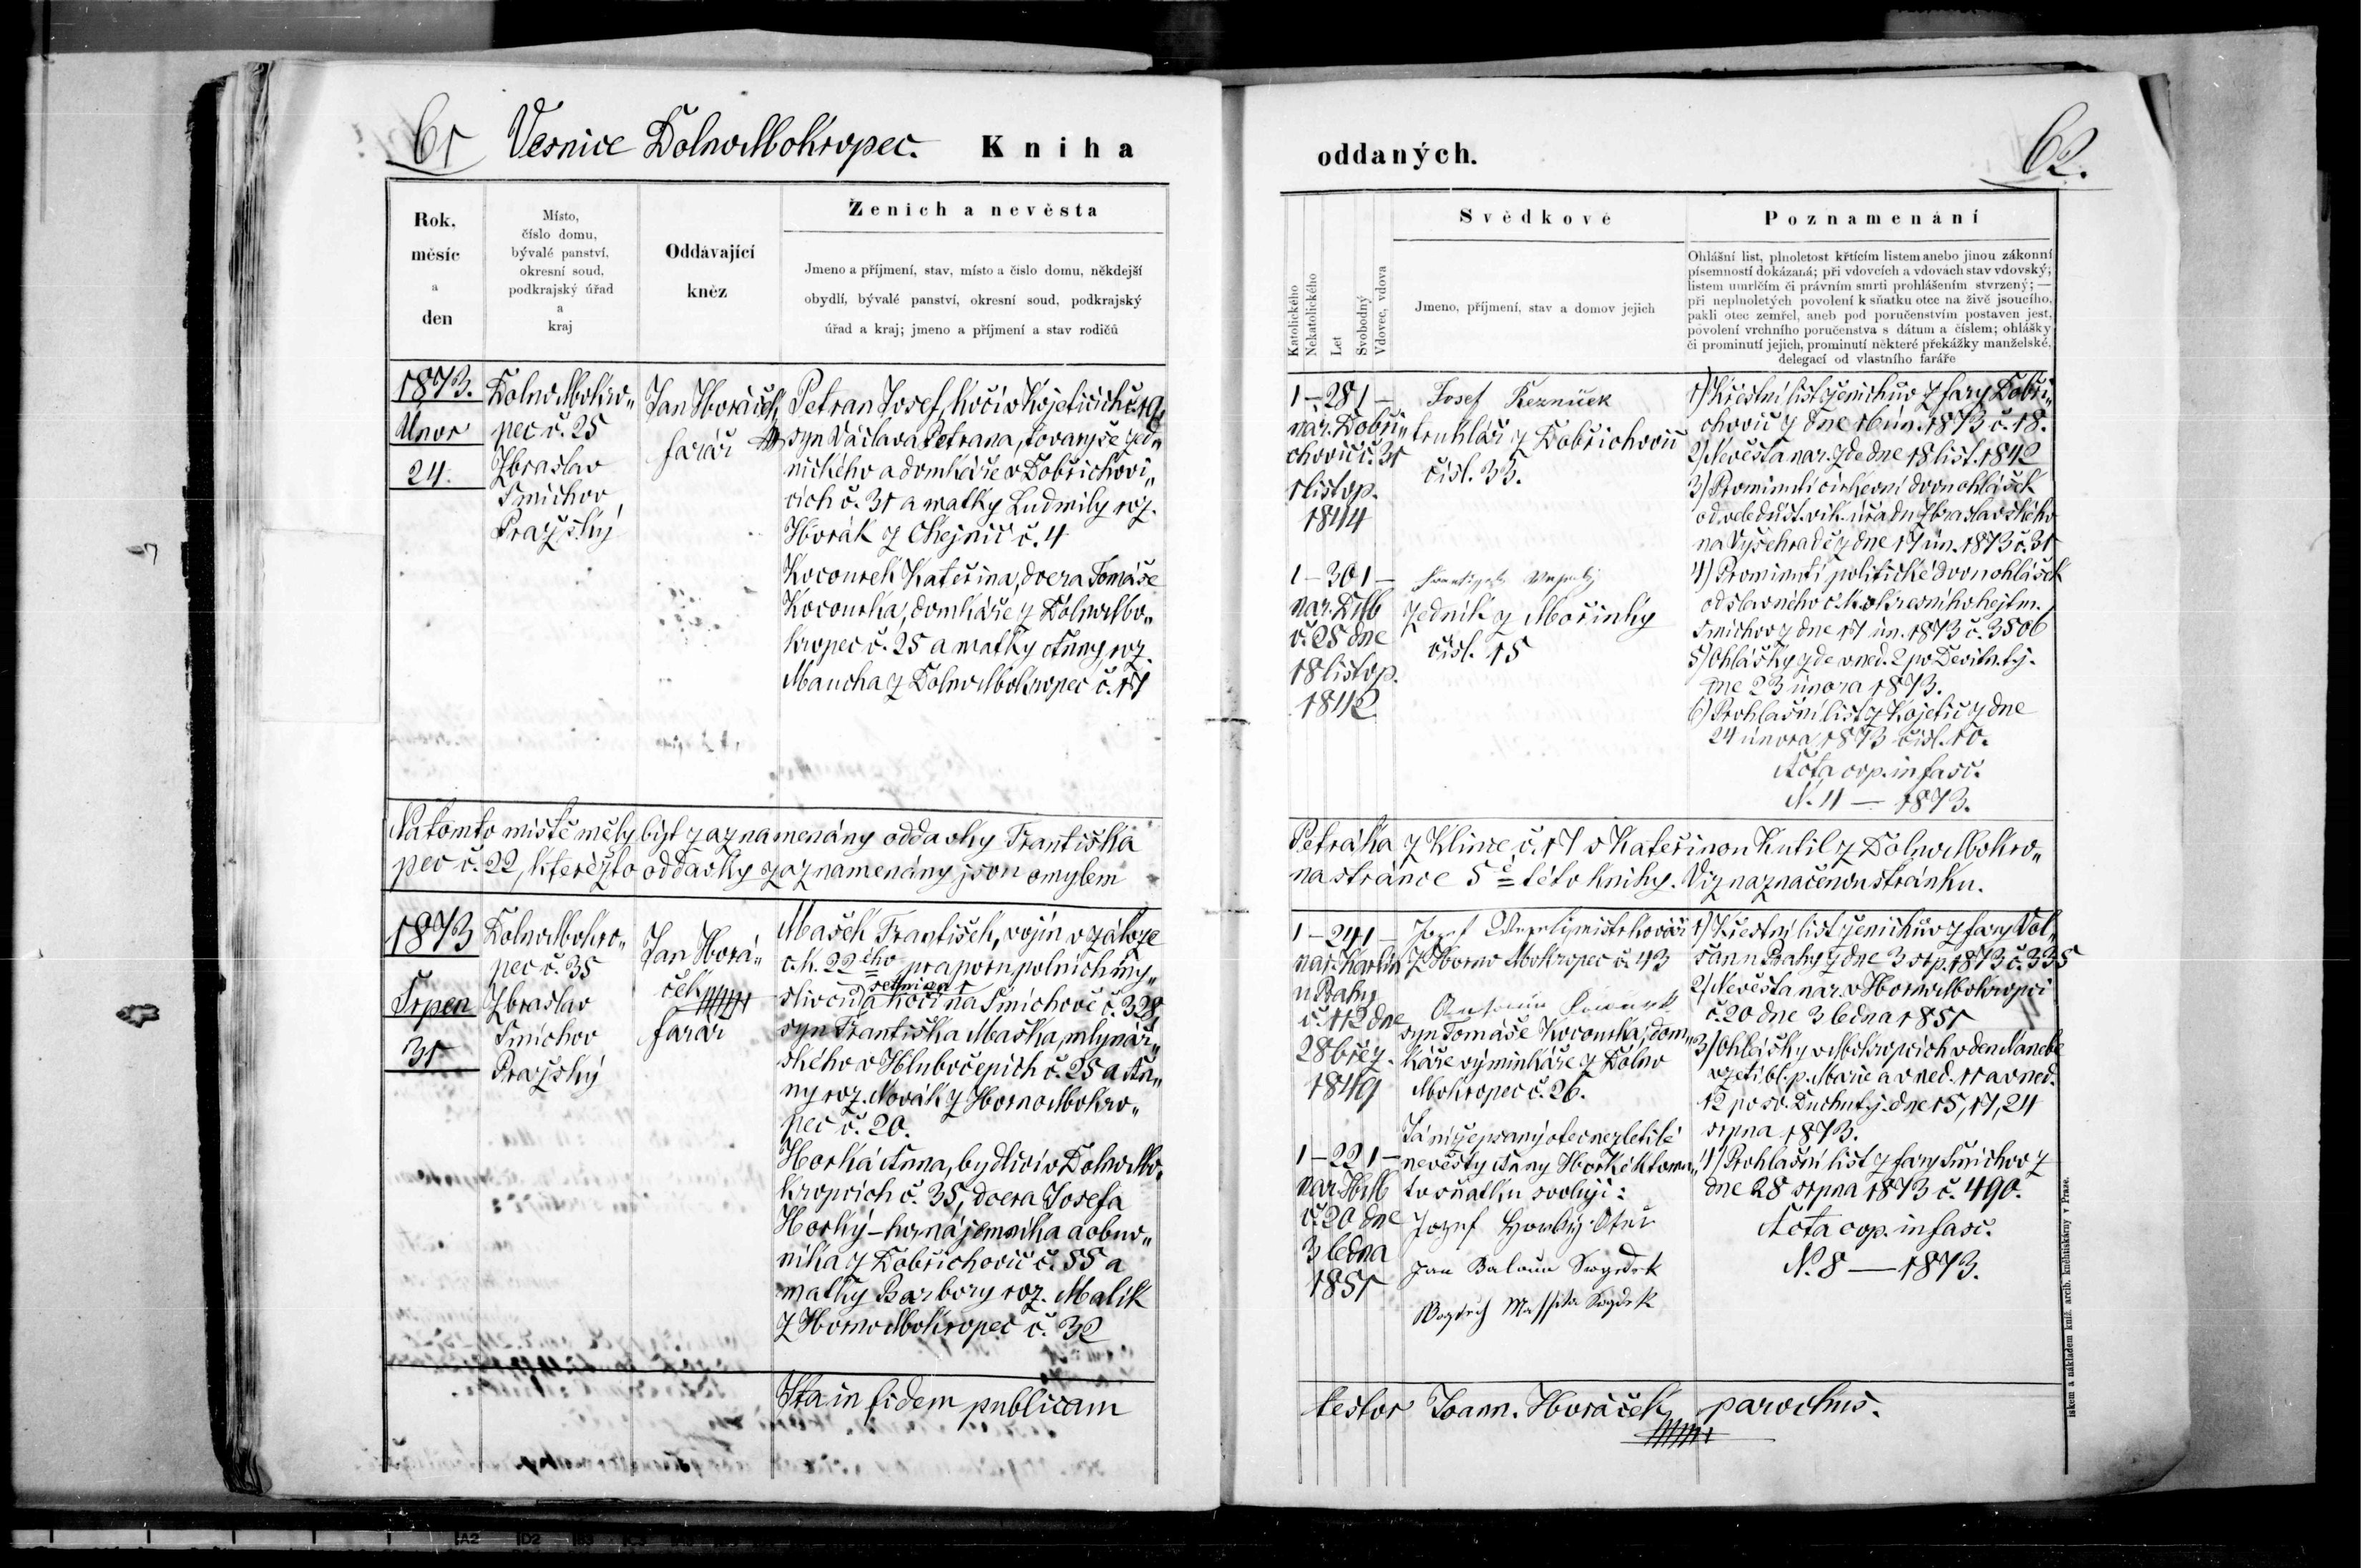 61 Vesnice DolnoMokropec. Kniha
oddaných. 62.
Rok,
měsíc
a
den
Místo,
číslo domu,
bývalé panství,
okresní soud,
podkrajský úřad
a
kraj
Oddávající
kněz
Ženich a nevěsta
Jmeno a příjmení, stav, místo a číslo domu, někdejší
obydlí, bývalé panství, okresní soud, podkrajský
úřad a kraj; jmeno a příjmení a stav rodičů
Katolického
Nekatolického
Let
Svobodný
Vdovec, vdova
Svědkové
Jmeno, příjmení, stav a domov jejich
Poznamenání
Ohlášní list, plnoletost křticím listem anebo jinou zákonní
písemností dokázaná; při vdovcích a vdovách stav vdovský;
listem umrlčím či právním smrti prohlášením stvrzený; —
při neplnoletých povolení k sňatku otce na živě jsoucího,
pakli otec zemřel, aneb pod poručenstvím postaven jest,
povolení vrchního poručenstva s dátum a číslem; ohlášky
či prominutí jejich, prominutí některé překážky manželské,
delegací od vlastního faráře
1873.
Únor
24.
DolnoMokro„
pec č. 25
Zbraslav
Smíchov
Pražský
Jan Horáček,
farář
Petran Josef, kočí v Kojeticích č. 19,
syn Václava Petrana, tovaryše zed„
nického a domkáře v Dobřichovi„
cích č. 31 a matky Ludmily roz.
Horák z Chejnic č. 4
Kocourek Kateřina, dcera Tomáše
Kocourka, domkáře z DolnoMo„
kropec č. 25 a matky Anny roz.
Maucha z DolnoMokropec č. 17
1 – 28 1 –
nar. Dobři„
chovic č. 31
1 listop.
1844
1 – 30 1 –
nar. DM
č. 25 dne
18 listop.
1842
Josef Řezníček
truhlář z Dobřichovic
čísl. 33.
zedník z Mořinky
čísl. 15
1) Křestní list ženichův z fary Dobři„
chovic z dne 16 ún. 1873 č. 18.
2) Nevěsta nar. zde dne 18 list. 1842
3) Prominutí církevní dvou ohlášek
od veledůst. vik. úřadu Zbraslavského
na Vyšehradě z dne 17 ún. 1873 č. 31
4) Prominutí politické dvou ohlášek
od slavného c. k. okresního hejtm.
Smíchov z dne 17 ún. 1873 č. 3506
5) Ohlášky zde v ned. 2 po Devítn. tj.
dne 23 února 1873.
6) Prohlašní list z Kojetic z dne
24 února 1873 čísl. 10.
Acta cop. in fasc.
N. 11 — 1873.
Na tomto místě měly býst zaznamenány oddavky Františka
Petráka z Klince č. 17 s Kateřinou Kutil z DolnoMokro„
pec č. 22, kteréžto oddavky zaznamenány jsou omylem
na stránce 5é této knihy. Viz naznačenou stránku.
1873
Srpen
31
DolnoMokro„
pec č. 35
Zbraslav
Smíchov
Pražský
Jan Horá„
ček
farář
Mašek František, vojín v záloze
c. k. 22ého praporu polních my„
slivců a kočí na Smíchově č. 328,
syn Františka Maška, mlynář„
ského v Hlubočepích č. 25 a An„
ny roz. Novák z HornoMokro„
pec č. 20.
Horká Anna, bydlící v DolnoMo„
kropcích č. 35, dcera Josefa
Horký – ho, nájemníka a obuv„
níka z Dobřichovic č. 55 a
matky Barbory roz. Malík
z HornoMokropec č. 32
1 – 24 1 –
nar. Karlín
u Prahy
č. 112 dne
28 břez.
1849
1 – 22 1 –
nar. HM
č. 20 dne
3 ledna
1851
mistr kovář
z HornoMokropec č. 43
syn Tomáše Kocourka, dom„
káře výminkáře z Dolno
Mokropec č. 26.
Já níže psaný otec nezletilé
nevěsty Anny Horké k tomu„
to sňatku svoluji:
Jozef Horký Otec
Jan Baloun Svědek
Svědek
1) Křestní list ženichův z fary Vol„
šan u Prahy z dne 3 srp. 1873 č. 335
2) Nevěsta nar. v HornoMokropci
č. 20 dne 3 ledna 1851
3) Ohlášky v Mokropcích v den Nanebe
vzetí bl. p. Marie a v ned. 11 a v ned.
12 po sv. Duchu t.j. dne 15, 17, 24
srpna 1873.
4) Prohlašní list z fary Smíchov z
dne 28 srpna 1873 č. 490.
Acta cop. in fasc.
N. 8 — 1873.
Ita in fidem publicam
testor Joann. Horáček, parochus.
iskem a nákladem kníž. arcib. knihtiskárny v Praze.